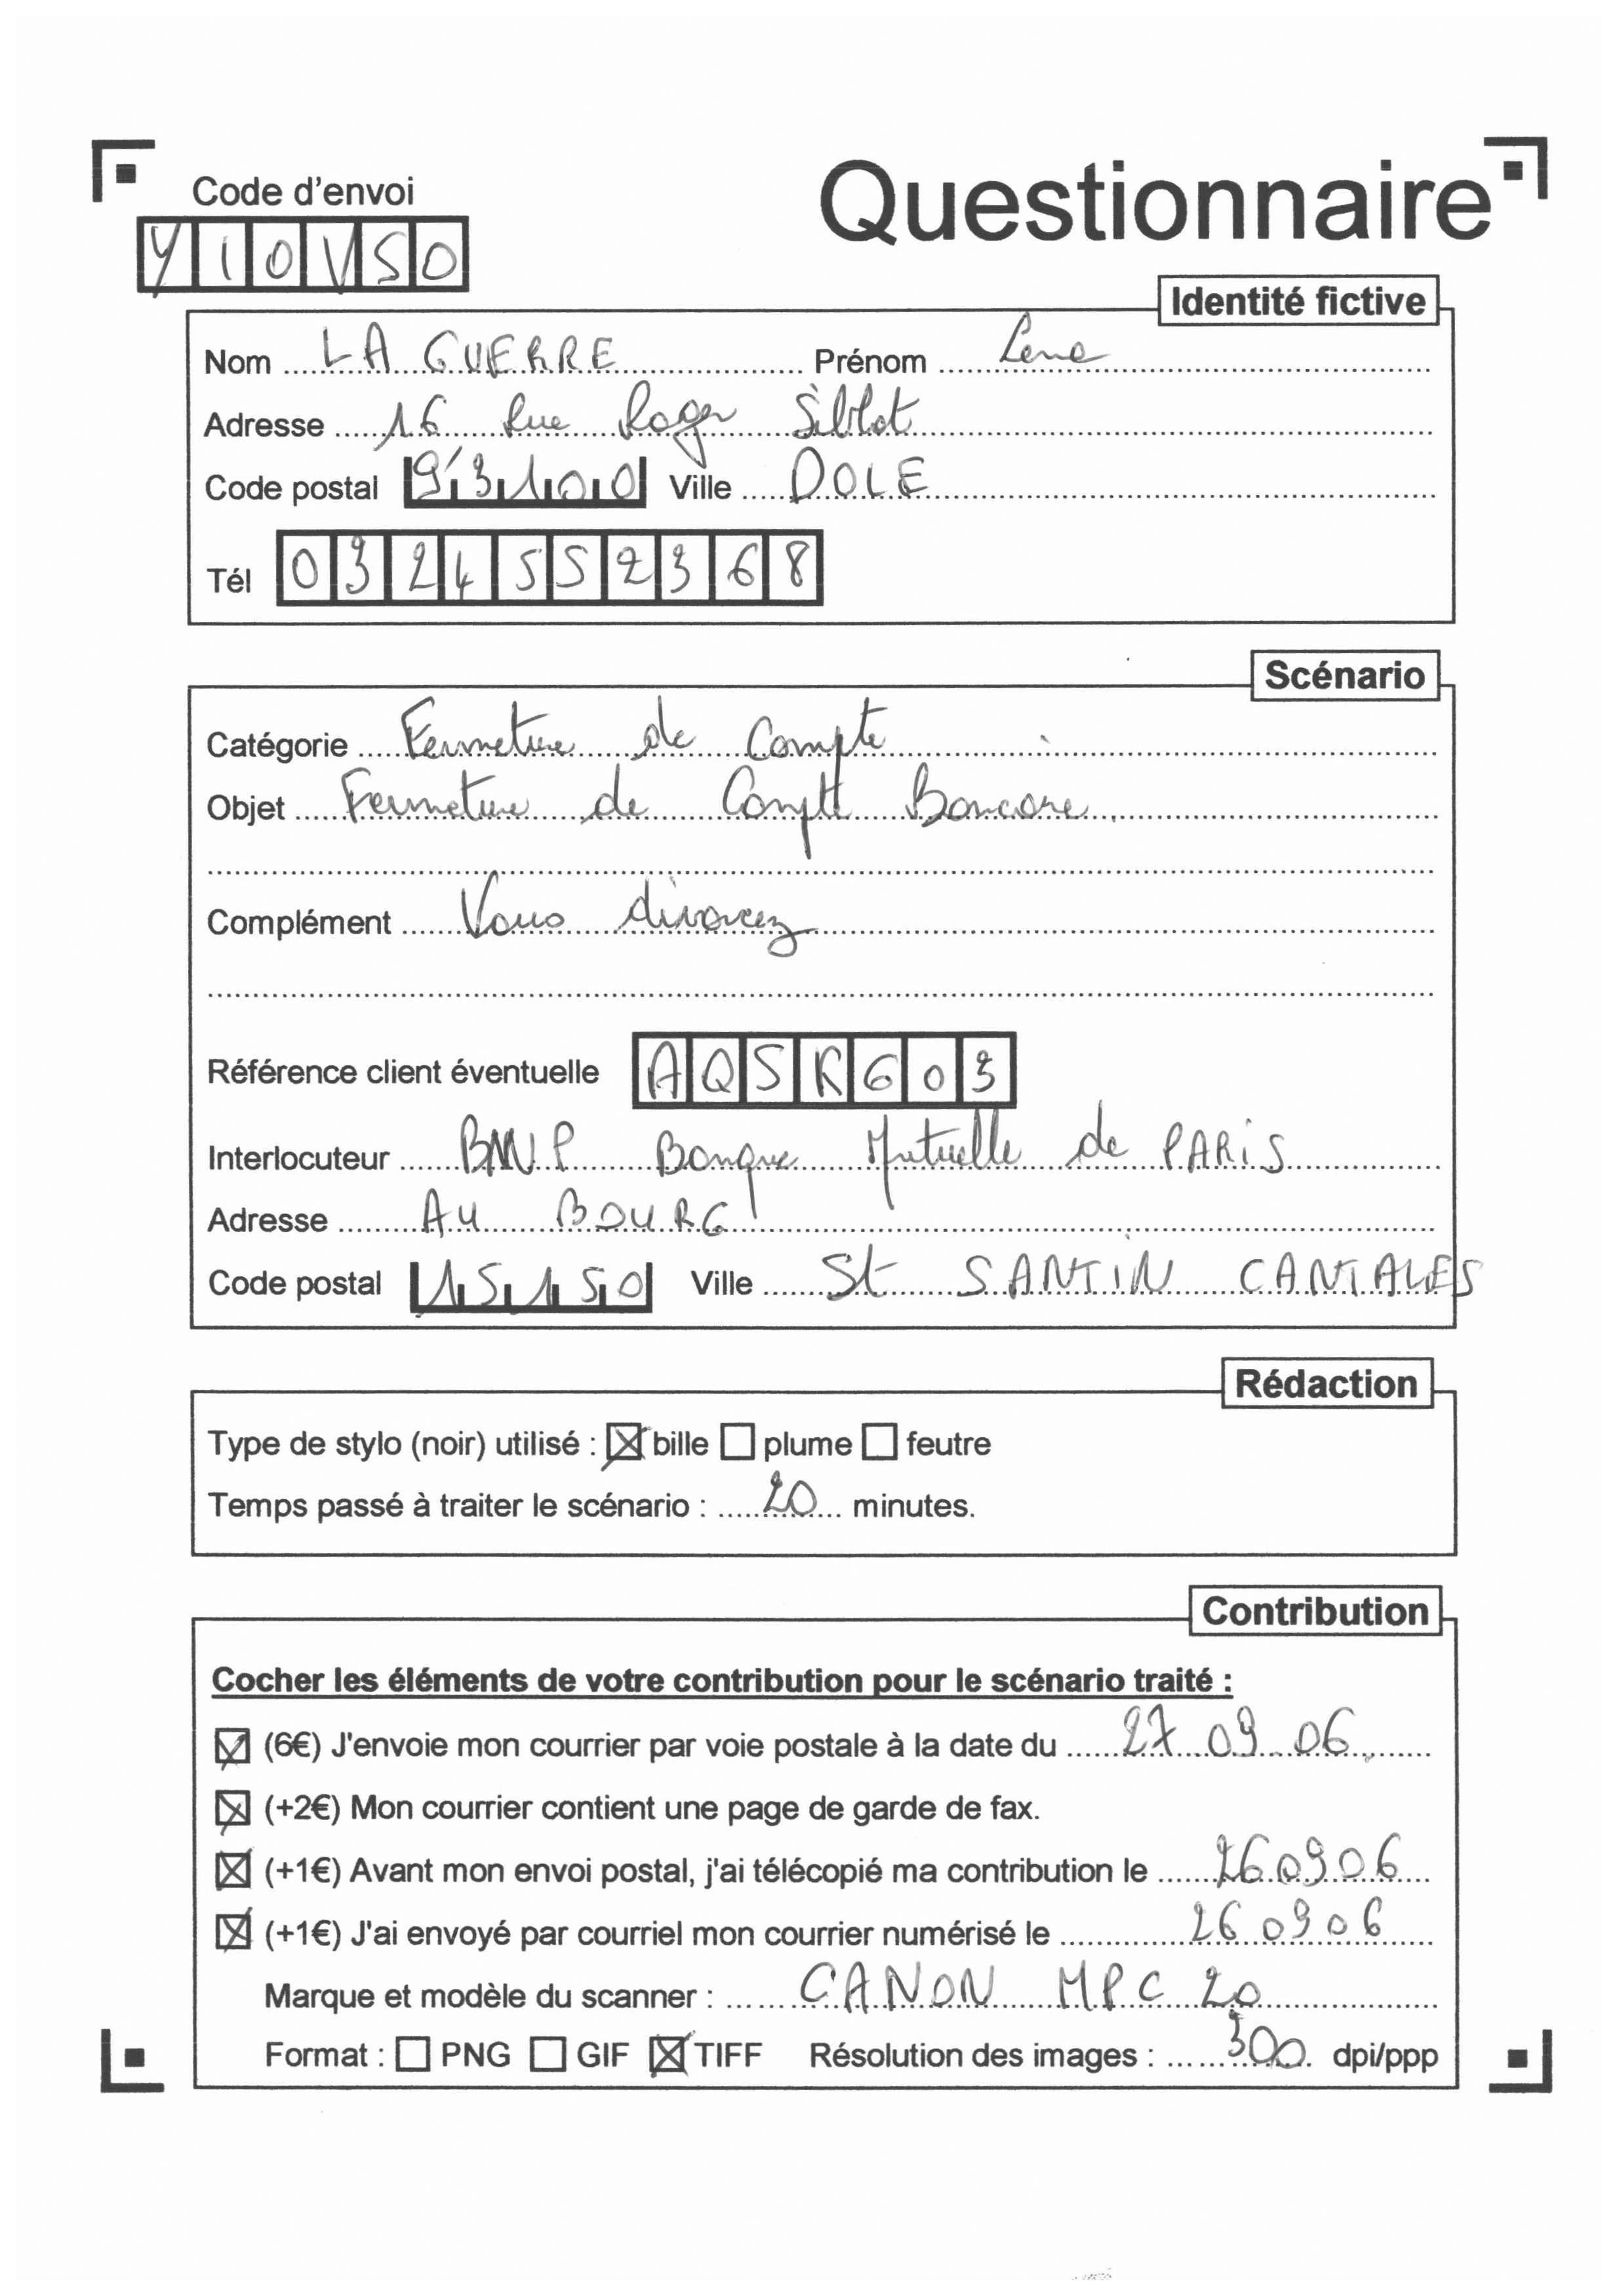 Code d'envoi
Questionnaire
Y10VSO
Identité fictive
Nom LA GUERRE Prénom Lena
Adresse 16 Rue Roger Siblot
Code postal 93100 Ville DOLE
Tél 0324552368
Scénario
Catégorie Fermeture de Compte
Objet Fermeture de Compte Bancaire
Complément Vous divorcez
Référence client éventuelle AQSRG03
Interlocuteur BNP Banque Mutuelle de PARIS
Adresse AU BOURG
Code postal 15150 Ville St SANTIN CANTALES
Rédaction
Type de stylo (noir) utilisé : bille plume feutre
Temps passé à traiter le scénario : 20 minutes.
Contribution
Cocher les éléments de votre contribution pour le scénario traité :
(6€) J'envoie mon courrier par voie postale à la date du 27 09 06
(+2€) Mon courrier contient une page de garde de fax.
(+1€) Avant mon envoi postal, j'ai télécopié ma contribution le 260906
(+1€) J'ai envoyé par courriel mon courrier numérisé le 260906
Marque et modèle du scanner : CANON MPC 20
Format : PNG GIF TIFF Résolution des images : 300 dpi/ppp